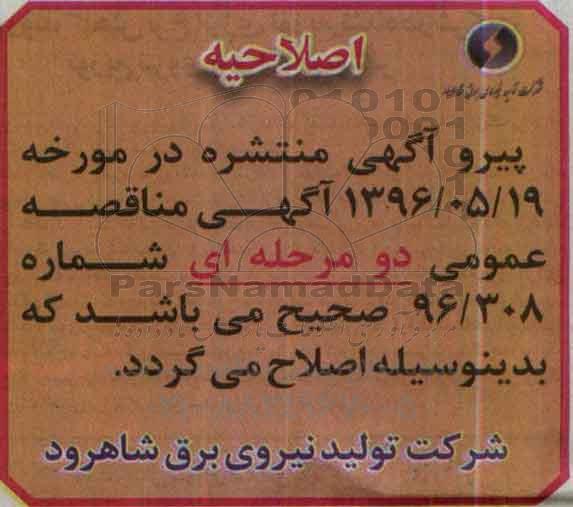 اصلاحیه
شرکت تولید نیروی برق شاهرود
پیرو آگهی منتشره در مورخه
۱۳۹۶/۰۵/۱۹ آگهی مناقصه
عمومی دو مرحله ای شماره
۹۶/۳۰۸ صحیح می باشد که
بدینوسیله اصلاح می گردد.
شرکت تولید نیروی برق شاهرود
ParsNamadData